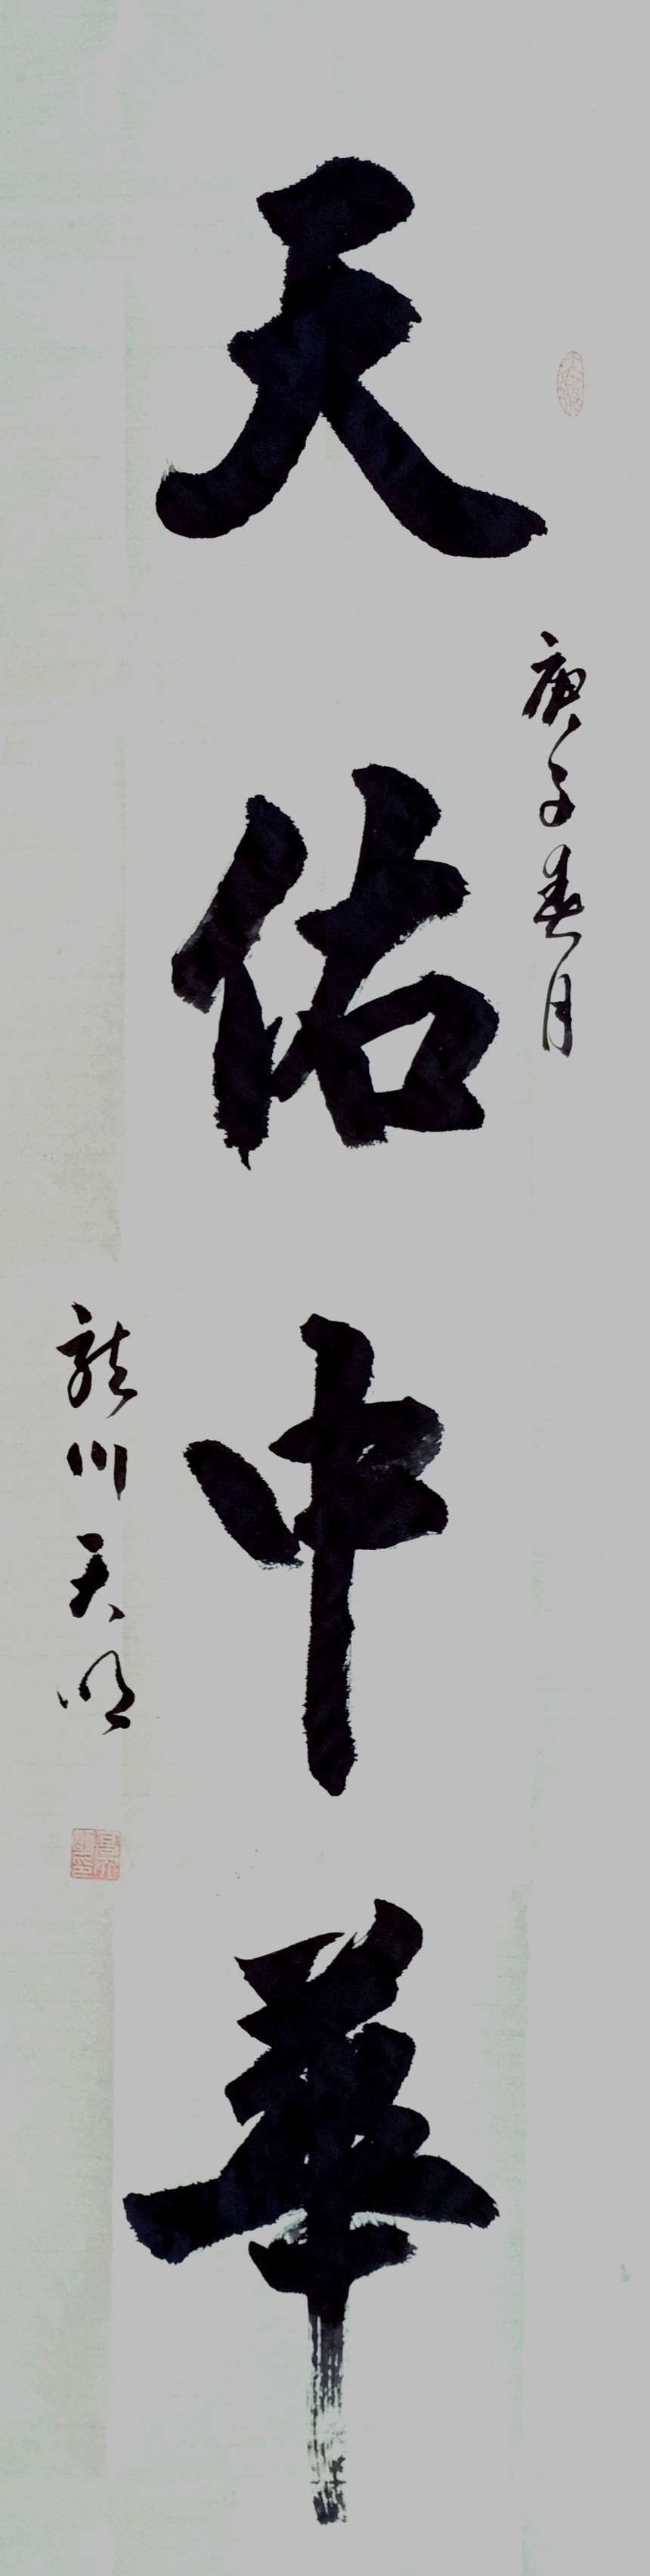 庚子春月
天佑中華
龍川天明